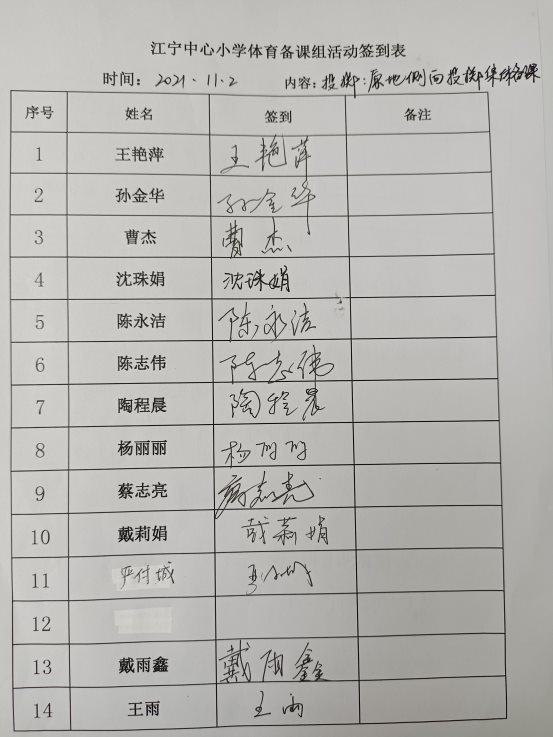 江宁中心小学体育备课组活动签到表
时间：2021.11.2 内容：投掷：原地侧向投掷集体备课
序号 姓名 签到 备注
1 王艳萍 王艳萍
2 孙金华 孙金华
3 曹杰 曹杰
4 沈珠娟 沈珠娟
5 陈永洁 陈永洁
6 陈志伟 陈志伟
7 陶程晨 陶程晨
8 杨丽丽 杨丽丽
9 蔡志亮 蔡志亮
10 戴莉娟 戴莉娟
11 严付城
12
13 戴雨鑫 戴雨鑫
14 王雨 王雨